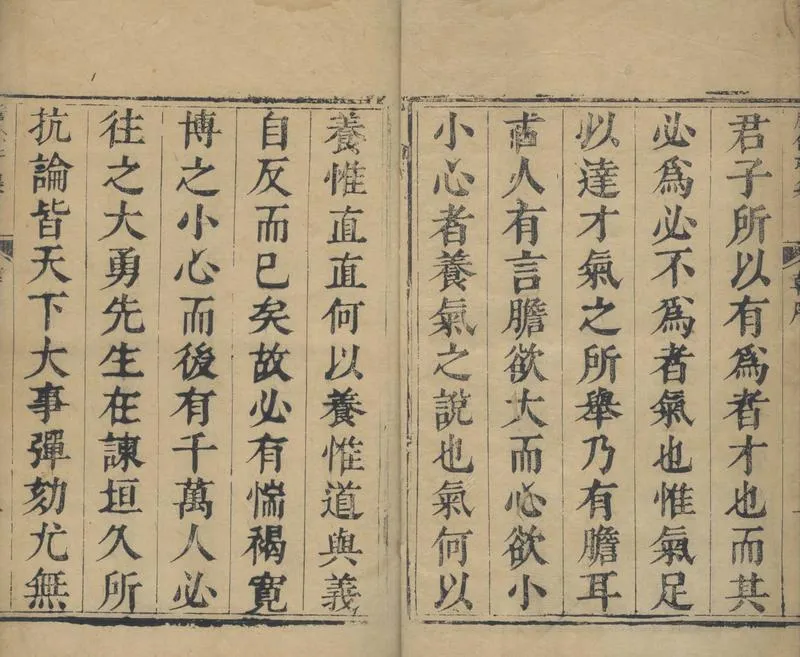 君子所以有爲者才也而其
必爲必不爲者氣也惟氣足
以達才氣之所舉乃有膽耳
古人有言膽欲大而心欲小
小心者養氣之說也氣何以
養惟直直何以養惟道與義
自反而已矣故必有惴褐寬
博之小心而後有千萬人必
往之大勇先生在諫垣久所
抗論皆天下大事彈劾尤無